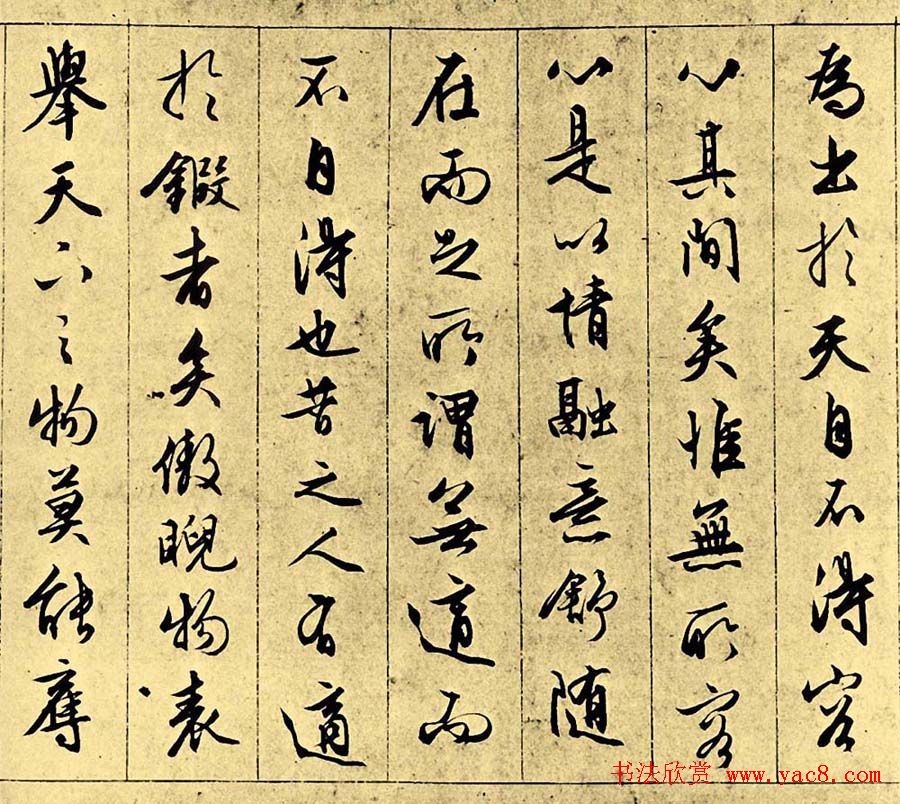 為出於天自不得容
心其間矣惟無所容
心是以情融意舒随
在而足所謂無適而
不自得也昔之人有適
於鍛者矣傲睨物表
舉天下之物莫能奪
书法欣赏 www.yac8.com